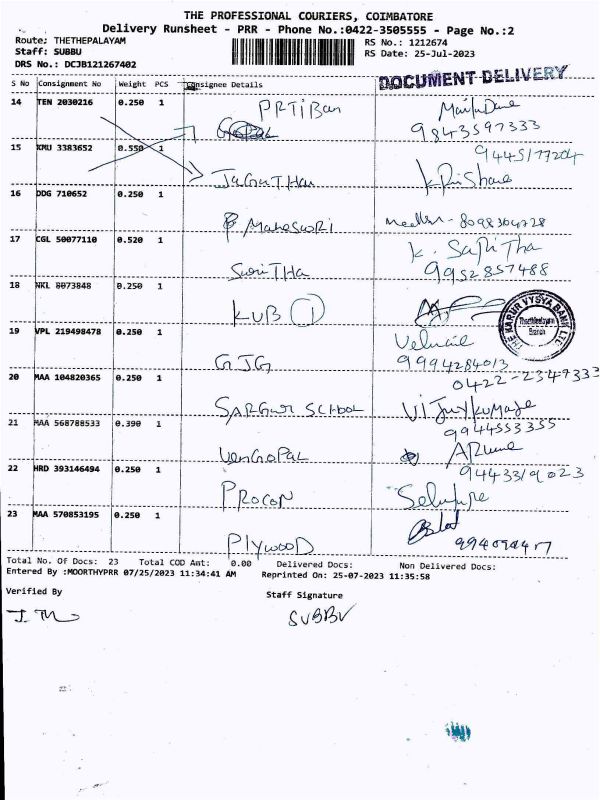 THE PROFESSIONAL COURIERS, COIMBATORE
Delivery Runsheet - PRR - Phone No.:0422-3505555 - Page No.:2
Route: THETHEPALAYAM
RS No.: 1212674
Staff: SUBBU
RS Date: 25-Jul-2023
DRS No.: DCJB121267402
DOCUMENT DELIVERY
S No Consignment No Weight PCS Consignee Details
14 TEN 2030216 0.250 1 PRTiBan
GOPAL 9843597333
15 KMU 3383652 0.550 1 9445177204
JaGaTHan
16 DDG 710652 0.250 1
P MaHeSWRi 8098304728
17 CGL 50077110 0.520 1 K. SaRiTha
SuriTHa 9952857488
18 NKL 8073848 0.250 1
KUB 1
THE KARUR VYSYA BANK LTD.
Branch
19 VPL 219498478 0.250 1
GJG 9994284013
20 MAA 104820365 0.250 1 0422-2347333
SARGUR SCHOOL
21 MAA 568788533 0.390 1 9944553355
VenGOPaL
22 HRD 393146494 0.250 1 9443319023
PROCON
23 MAA 570853195 0.250 1
PlywOOD
Total No. Of Docs: 23 Total COD Amt: 0.00 Delivered Docs: Non Delivered Docs:
Entered By :MOORTHYPRR 07/25/2023 11:34:41 AM Reprinted On: 25-07-2023 11:35:58
Verified By
Staff Signature
SUBBU